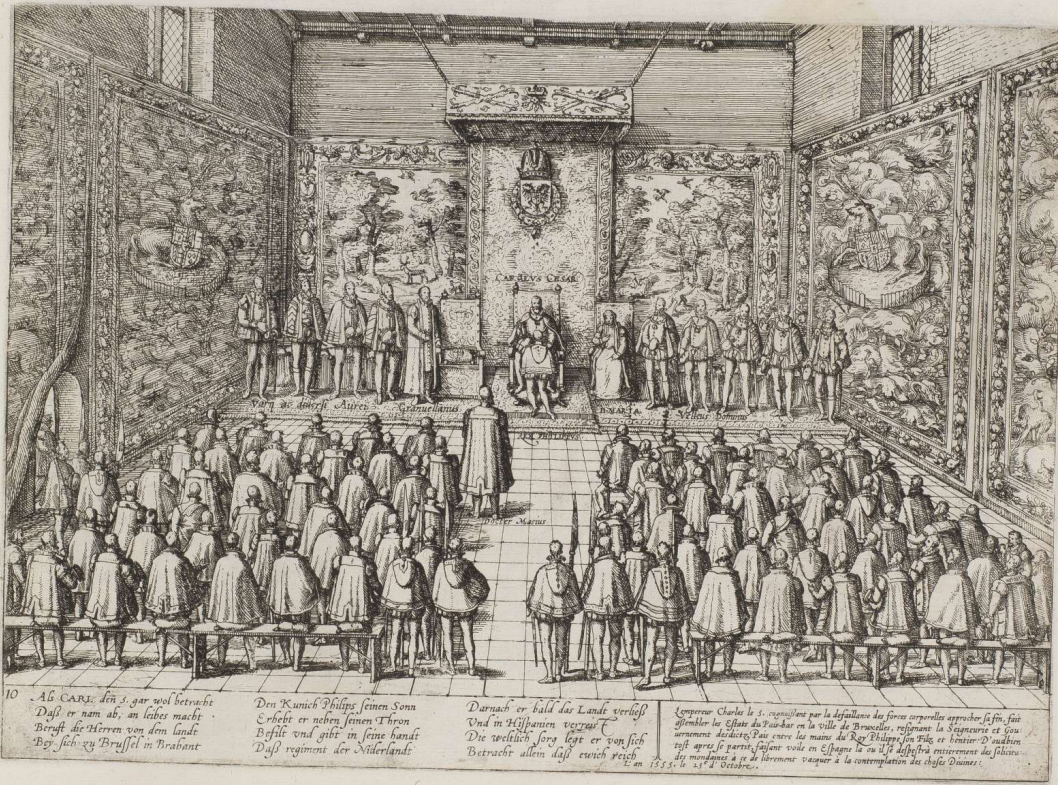 CAROLVS CESAR
Granuellanus
R. MARIA
REX PHILIPPVS
Docter Matius
10
Als CARL den 5. gar wol betracht
Daß er nam ab, an leibes macht
Berufft die Herren von dem landt
Bey sich zu Brussel in Brabant
Den Kunich Philips seinen Sonn
Erhebt er neben seinen Thron
Befilt vnd gibt in seine handt
Daß regiment der Niderlandt
Darnach er bald das Landt verließ
Vnd in Hispanien verreist
Die weltlich sorg legt er von sich
Betracht allein daß ewich reich
L'empereur Charles le 5. cognoissant par la defaillance des forces corporelles approcher sa fin, fait
assembler les Estats du Pais-bas en la ville de Bruxelles, resignant la Seigneurie et Gou-
uernement desdictz Pais entre les mains du Roy Philippe son Filz et heritier D'ou bien
tost apres se partit, faisant voile en Espagne la ou il se despestra entierement des solicitu-
des mondaines a ce de librement vacquer à la contemplation des choses Diuines:
L'an 1555. le 23e d'Octobre.